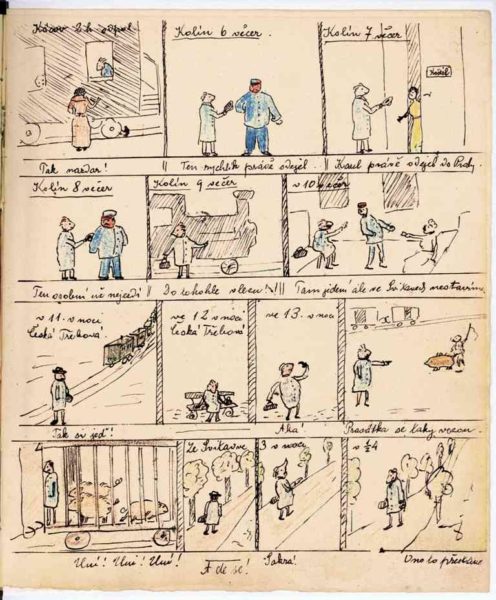 Kácov 2 h odpol
Kolín 6 večer.
Kolín 7 večer
Hotel
Tak nazdar!
Ten rychlík právě odejel.
Karel právě odejel do Prahy.
Kolín 8 večer
Kolín 9 večer
v 10 večer
Ten osobní už nejezdí
Do tohohle vlezu!
Tam jedem ale ve Svitavech nestavíme
v 11. v noci
Česká Třebová
ve 12 v noci
Česká Třebová
ve 13. v noci
Tak si jeď!
Aha!
Prasátka se taky vezou.
Uni! Uni! Uni!
Ze Svitavy
A de se!
3 v noci
Sakra!
v ¾4
Ono to přestane